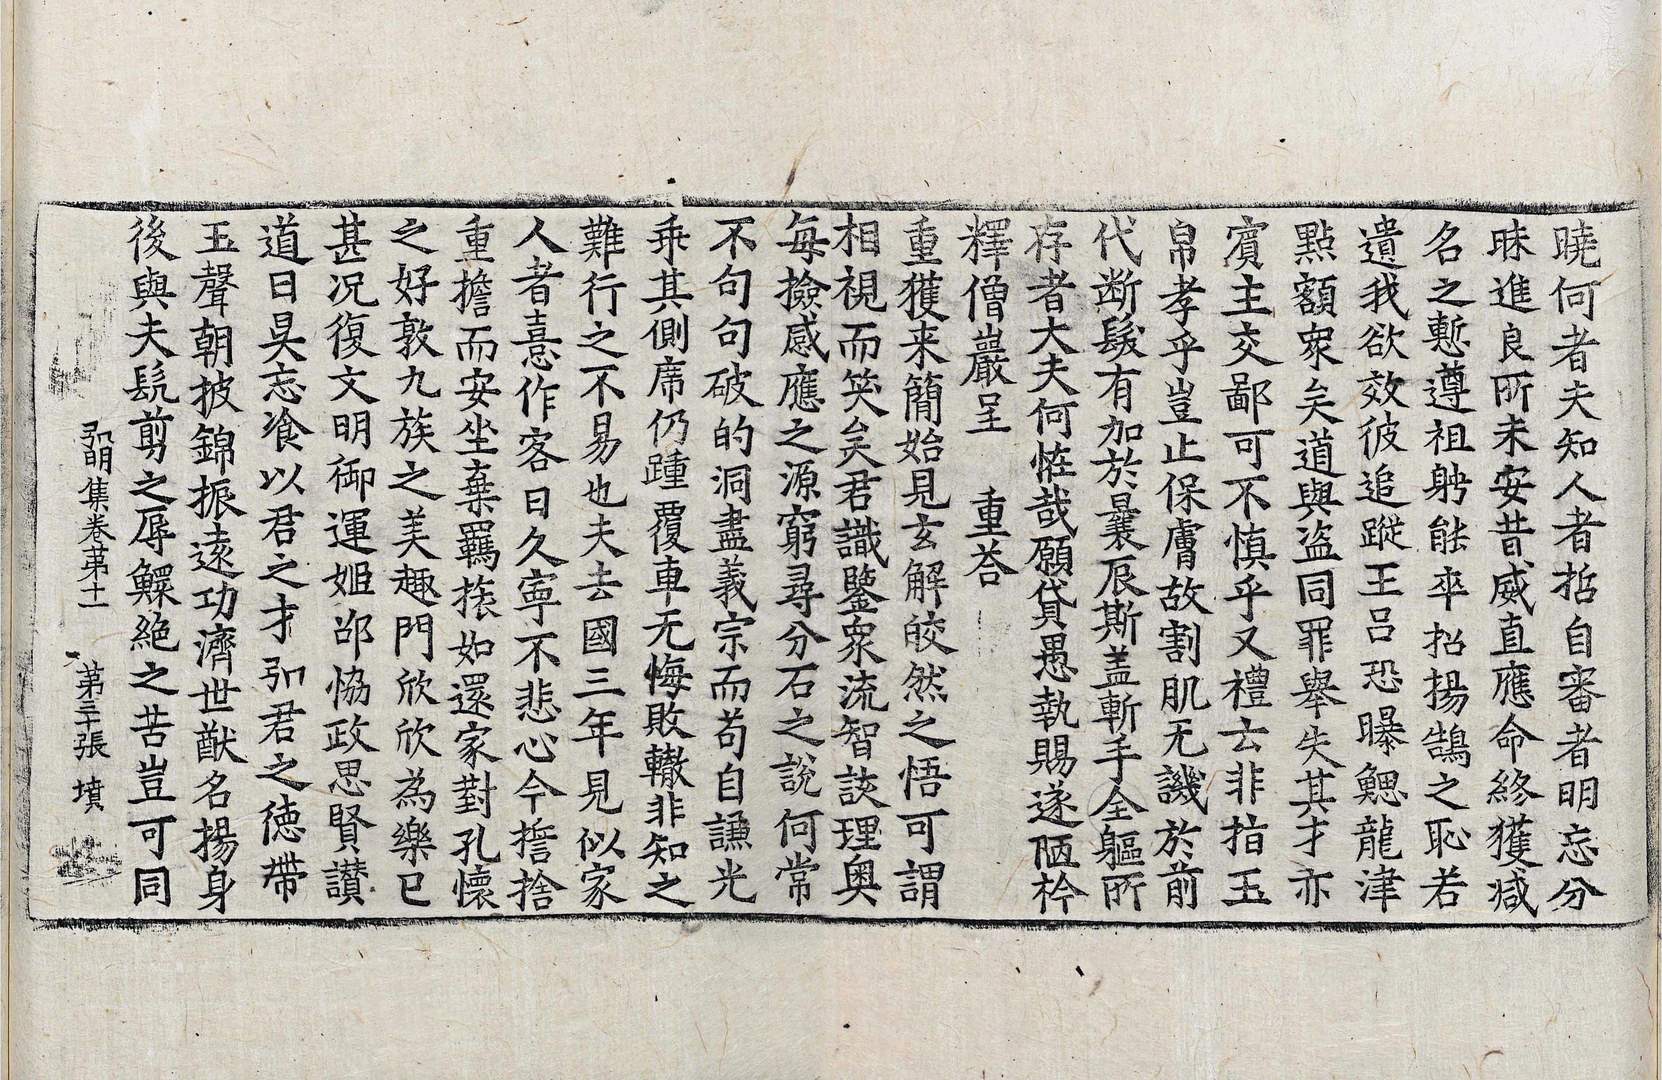 曉何者夫知人者哲自審者明忘分
昧進良所未安昔威直應命終獲減
名之慙遵祖躬能卒招揚鵠之恥若
遺我欲效彼追蹤王呂恐曝鰓龍津
點額衆矣道與盜同罪舉失其才亦
賓主交鄙可不慎乎又禮云非指玉
帛孝乎豈止保膚故割肌无譏於前
代斷髮有加於曩辰斯盖斬手全軀所
存者大夫何恠哉願貸愚執賜遂陋衿
釋僧巖呈　重荅
重獲来簡始見玄解皎然之悟可謂
相視而笑矣君識鑒衆流智談理奥
每撿感應之源窮尋分石之說何常
不句句破的洞盡義宗而苟自謙光
乘其側席仍踵覆車无悔敗轍非知之
難行之不易也夫去國三年見似家
人者憙作客日久寧不悲心今擔捨
重擔而安坐棄羇旅如還家對孔懷
之好敦九族之美趣門欣欣為樂已
甚況復文明御運姬邵恊政思賢讃
道日昃忘飡以君之才弘君之德帶
玉聲朝披錦振遠功濟世猷名揚身
後與夫髡剪之辱鰥絕之苦豈可同
弘明集卷苐十一　苐三十張　墳